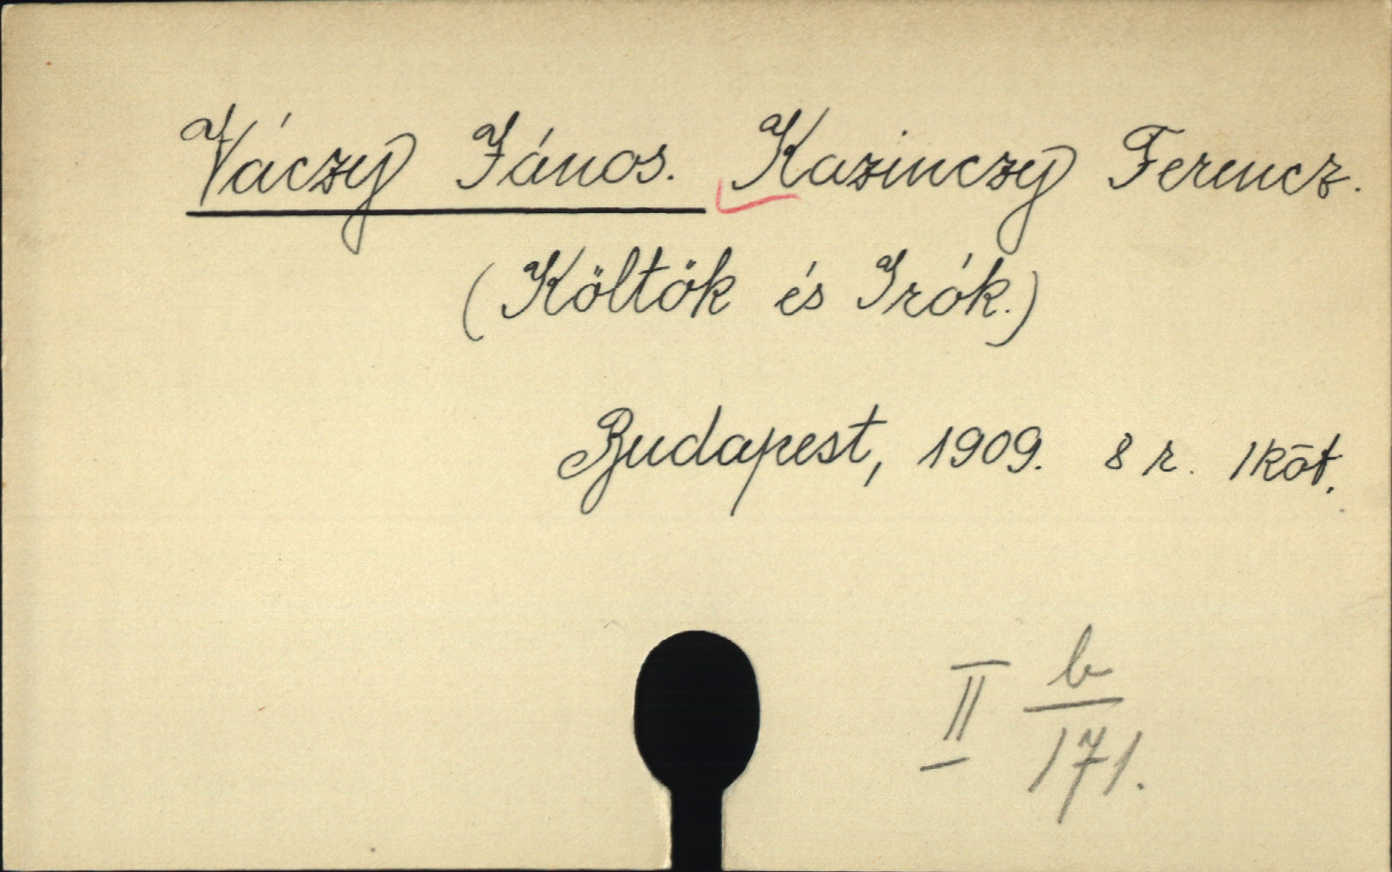 Váczy János. Kazinczy Ferencz.
(Költök és Irók.)
Budapest, 1909. 8 r. 1 köt.
II b/171.